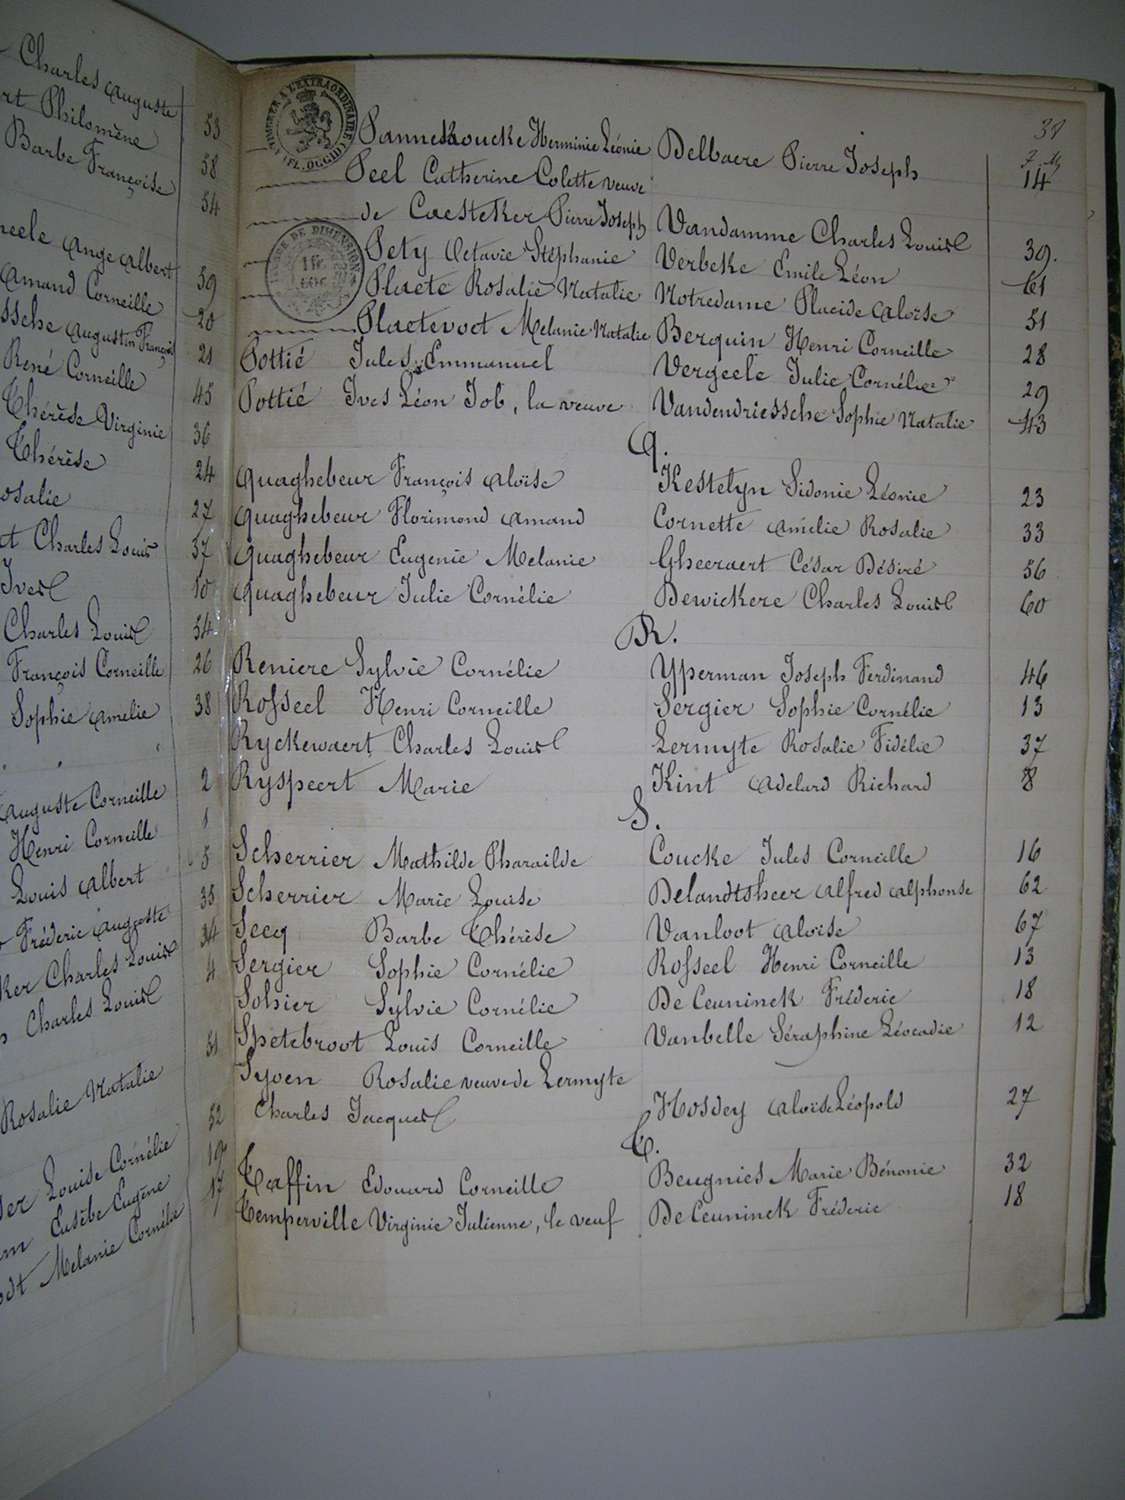 Charles Auguste 53
rt Philomène 58
Barbe Françoise 54
neele Ange Albert 59
Amand Corneille 20
ssche Augustin François 21
René Corneille 45
Thérèse Virginie 36
Thérèse 24
osalie 27
Charles Louis 57
Ives 10
Charles Louis 54
François Corneille 26
Sophie Amelie 38
Auguste Corneille 2
Henri Corneille 1
Louis Albert 5
Fréderic Auguste 35
ker Charles Louis 34
Charles Louis 4
51
Rosalie Natalie 52
der Louise Cornélie 19
Eusèbe Eugène 17
odt Melanie Cornélie
31
Pannekoucke Herminie Léonie Delbaere Pierre Joseph 14
Peel Catherine Colette veuve
de Caesteker Pierre Joseph Vandamme Charles Louis 39.
Pety Octavie Stéphanie Verbeke Emile Léon 61
Plaete Rosalie Natalie Notredame Placide Aloïse 51
Plaetevoet Melanie Natalie Berquin Henri Corneille 28
Pottié Jules Emmanuel Vergeele Julie Cornélie 29
Pottié Ives Léon Job, la veuve Vandendriessche Sophie Natalie 43
Q.
Quaghebeur François Aloïse Kestelyn Sidonie Léonie 23
Quaghebeur Florimond Amand Cornette Amélie Rosalie 33
Quaghebeur Eugenie Melanie Gheeraert César Désiré 56
Quaghebeur Julie Cornélie Dewickere Charles Louis 60
R.
Reniere Sylvie Cornélie Yperman Joseph Ferdinand 46
Rosseel Henri Corneille Sergier Sophie Cornélie 13
Ryckewaert Charles Louis Lermyte Rosalie Fidélie 37
Ryspeert Marie Kint Adelard Richard 8
S.
Scherrier Mathilde Pharaïlde Coucke Jules Corneille 16
Scherrier Marie Louise Delandtsheer Alfred Alphonse 62
Secq Barbe Thérèse Vanloot Aloïse 67
Sergier Sophie Cornélie Rosseel Henri Corneille 13
Sohier Sylvie Cornélie De Ceuninck Fréderic 18
Spetebroot Louis Corneille Vanbelle Séraphine Léocadie 12
Syoen Rosalie veuve de Lermyte
Charles Jacques Hosdey Aloïse Léopold 27
T.
Taffin Edouard Corneille Beugnies Marie Bénonie 32
Temperville Virginie Julienne, le veuf De Ceuninck Fréderic 18